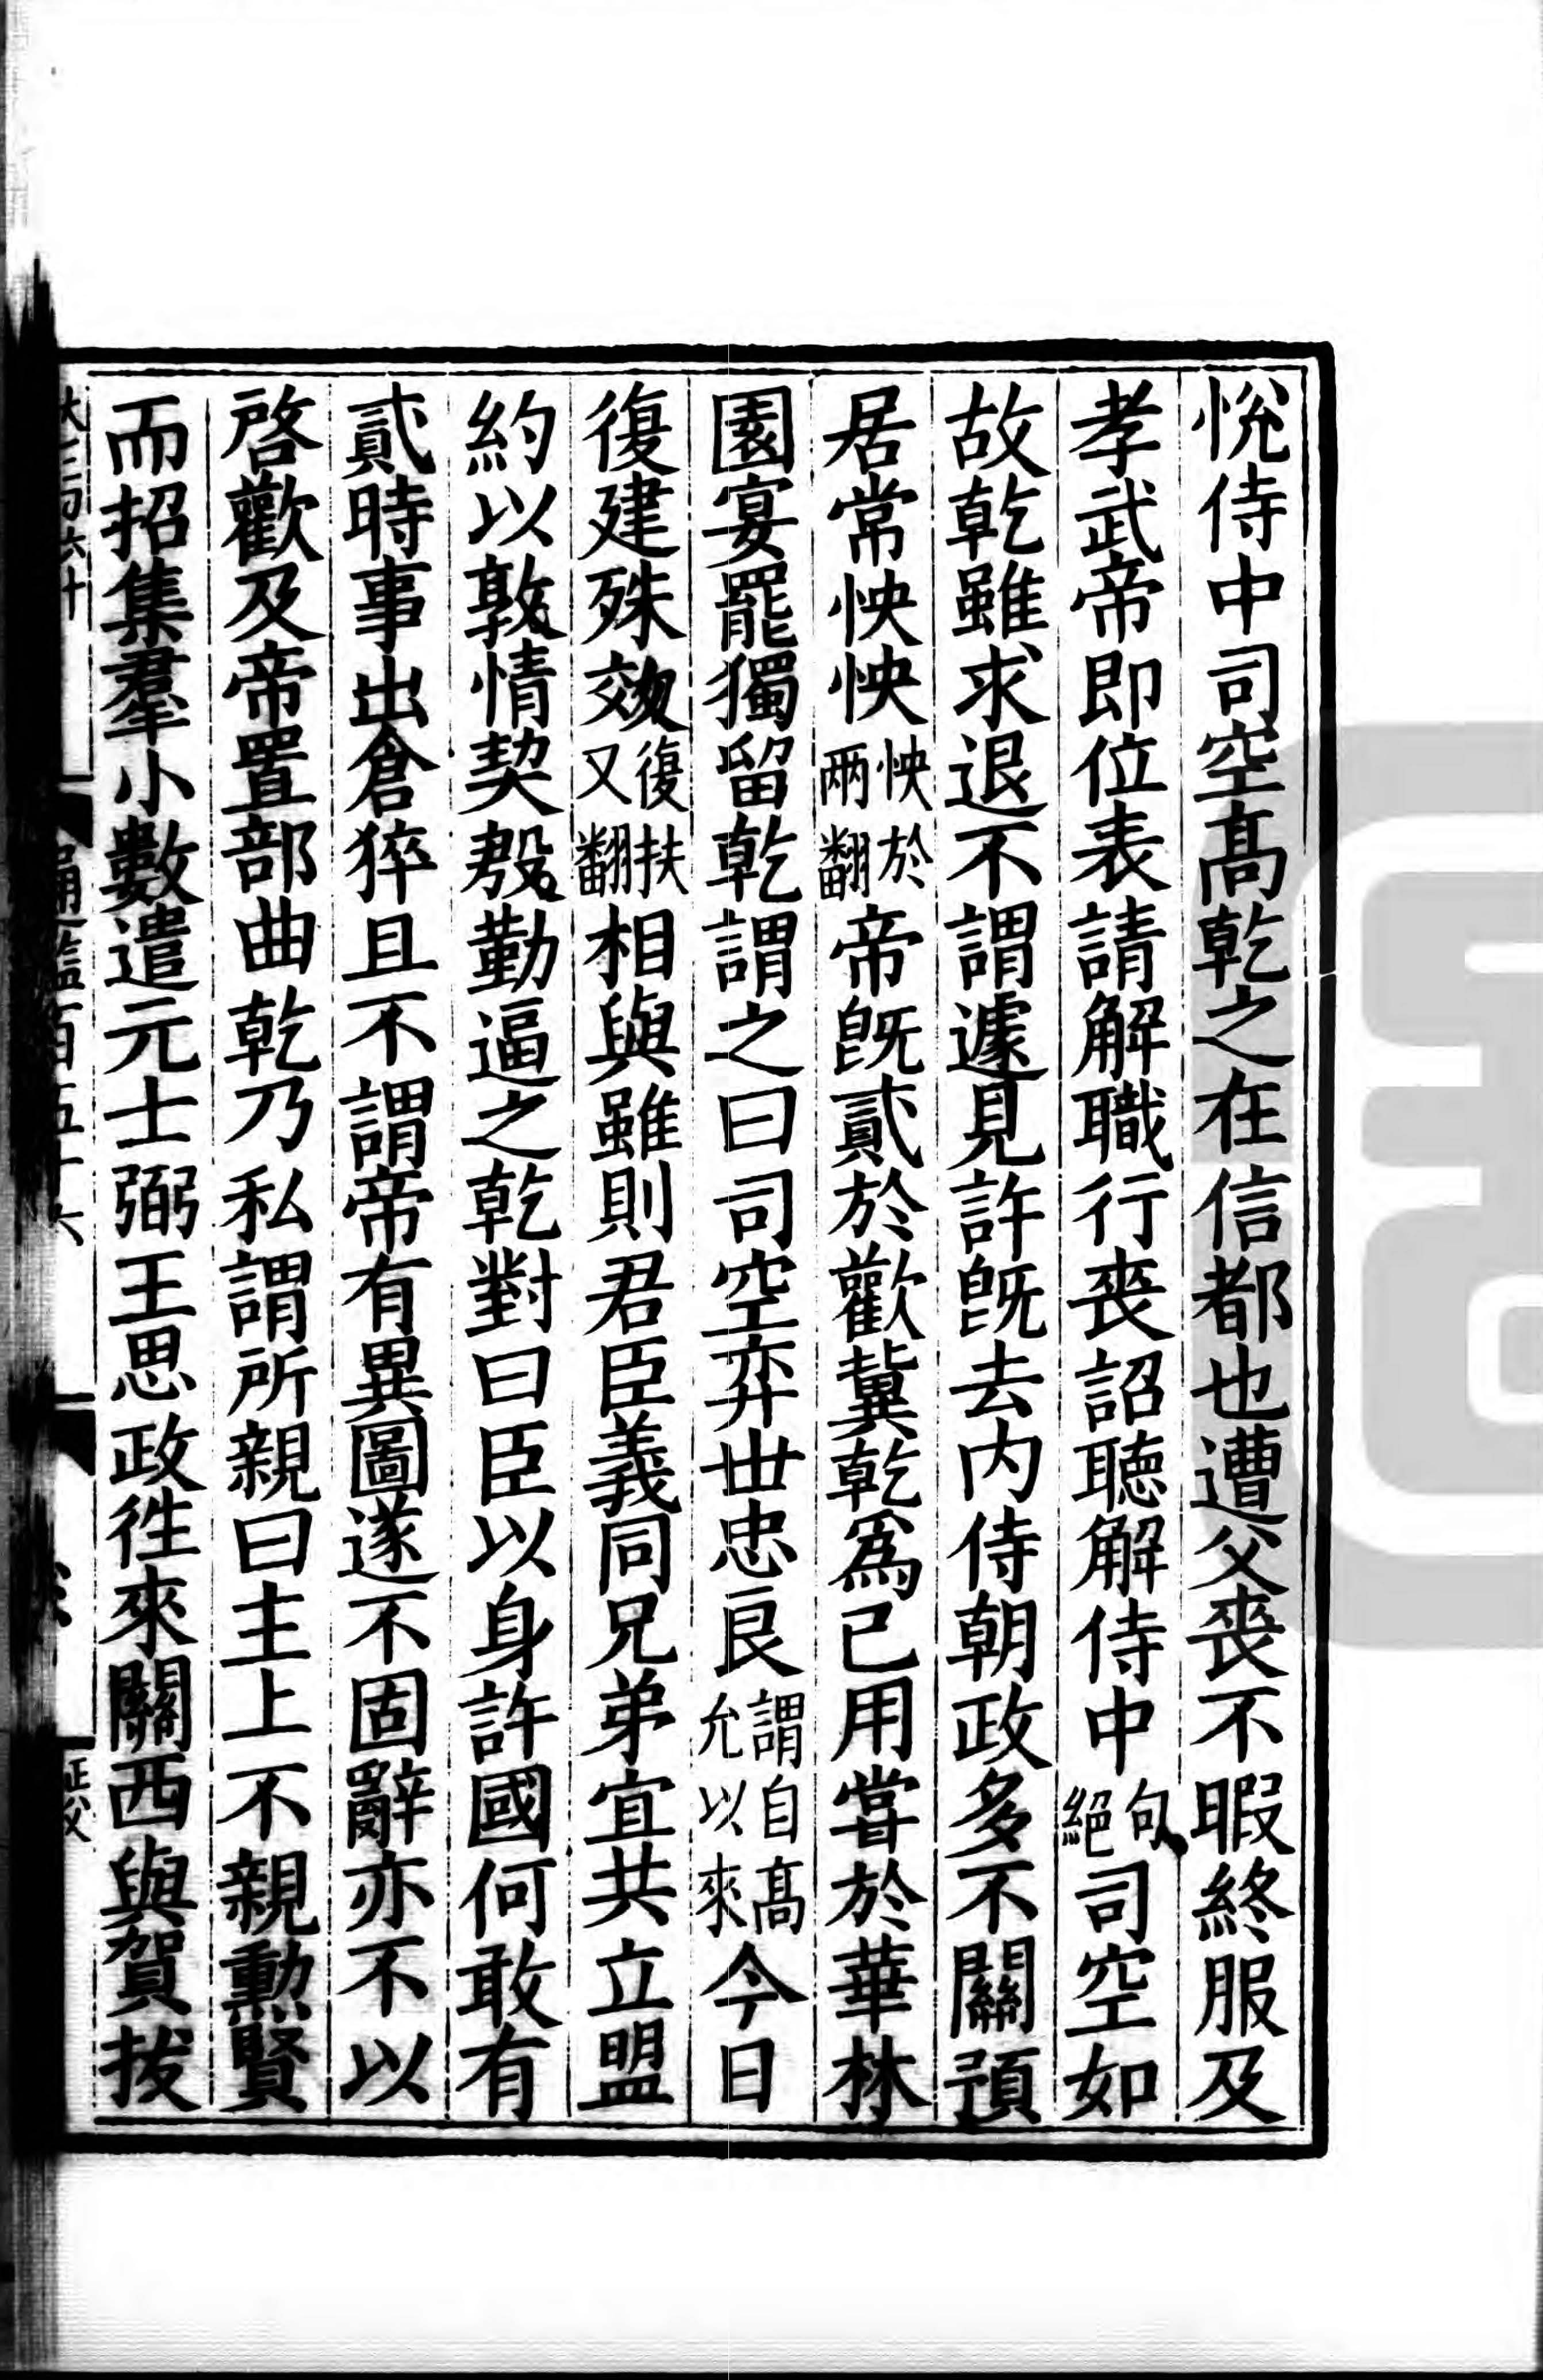 悅侍中司空髙乾之在信都也遭父喪不暇終服及
孝武帝即位表請解職行喪詔聽解侍中句絕司空如
故乾雖求退不謂遽見許旣去内侍朝政多不關預
居常怏怏怏於兩翻帝旣貳於歡冀乾爲已用甞於華林
園宴罷獨留乾謂之曰司空弈丗忠良謂自高允以來今日
復建殊效復扶又翻相與雖則君臣義同兄弟宜共立盟
約以敦情契慇勤逼之乾對曰臣以身許國何敢有
貳時事出倉猝且不謂帝有異圖遂不固辭亦不以
啓歡及帝置部曲乾乃私謂所親曰主上不親勲賢
而招集羣小數遣元士弼王思政徃來關西與賀拔
通鑑百五十六